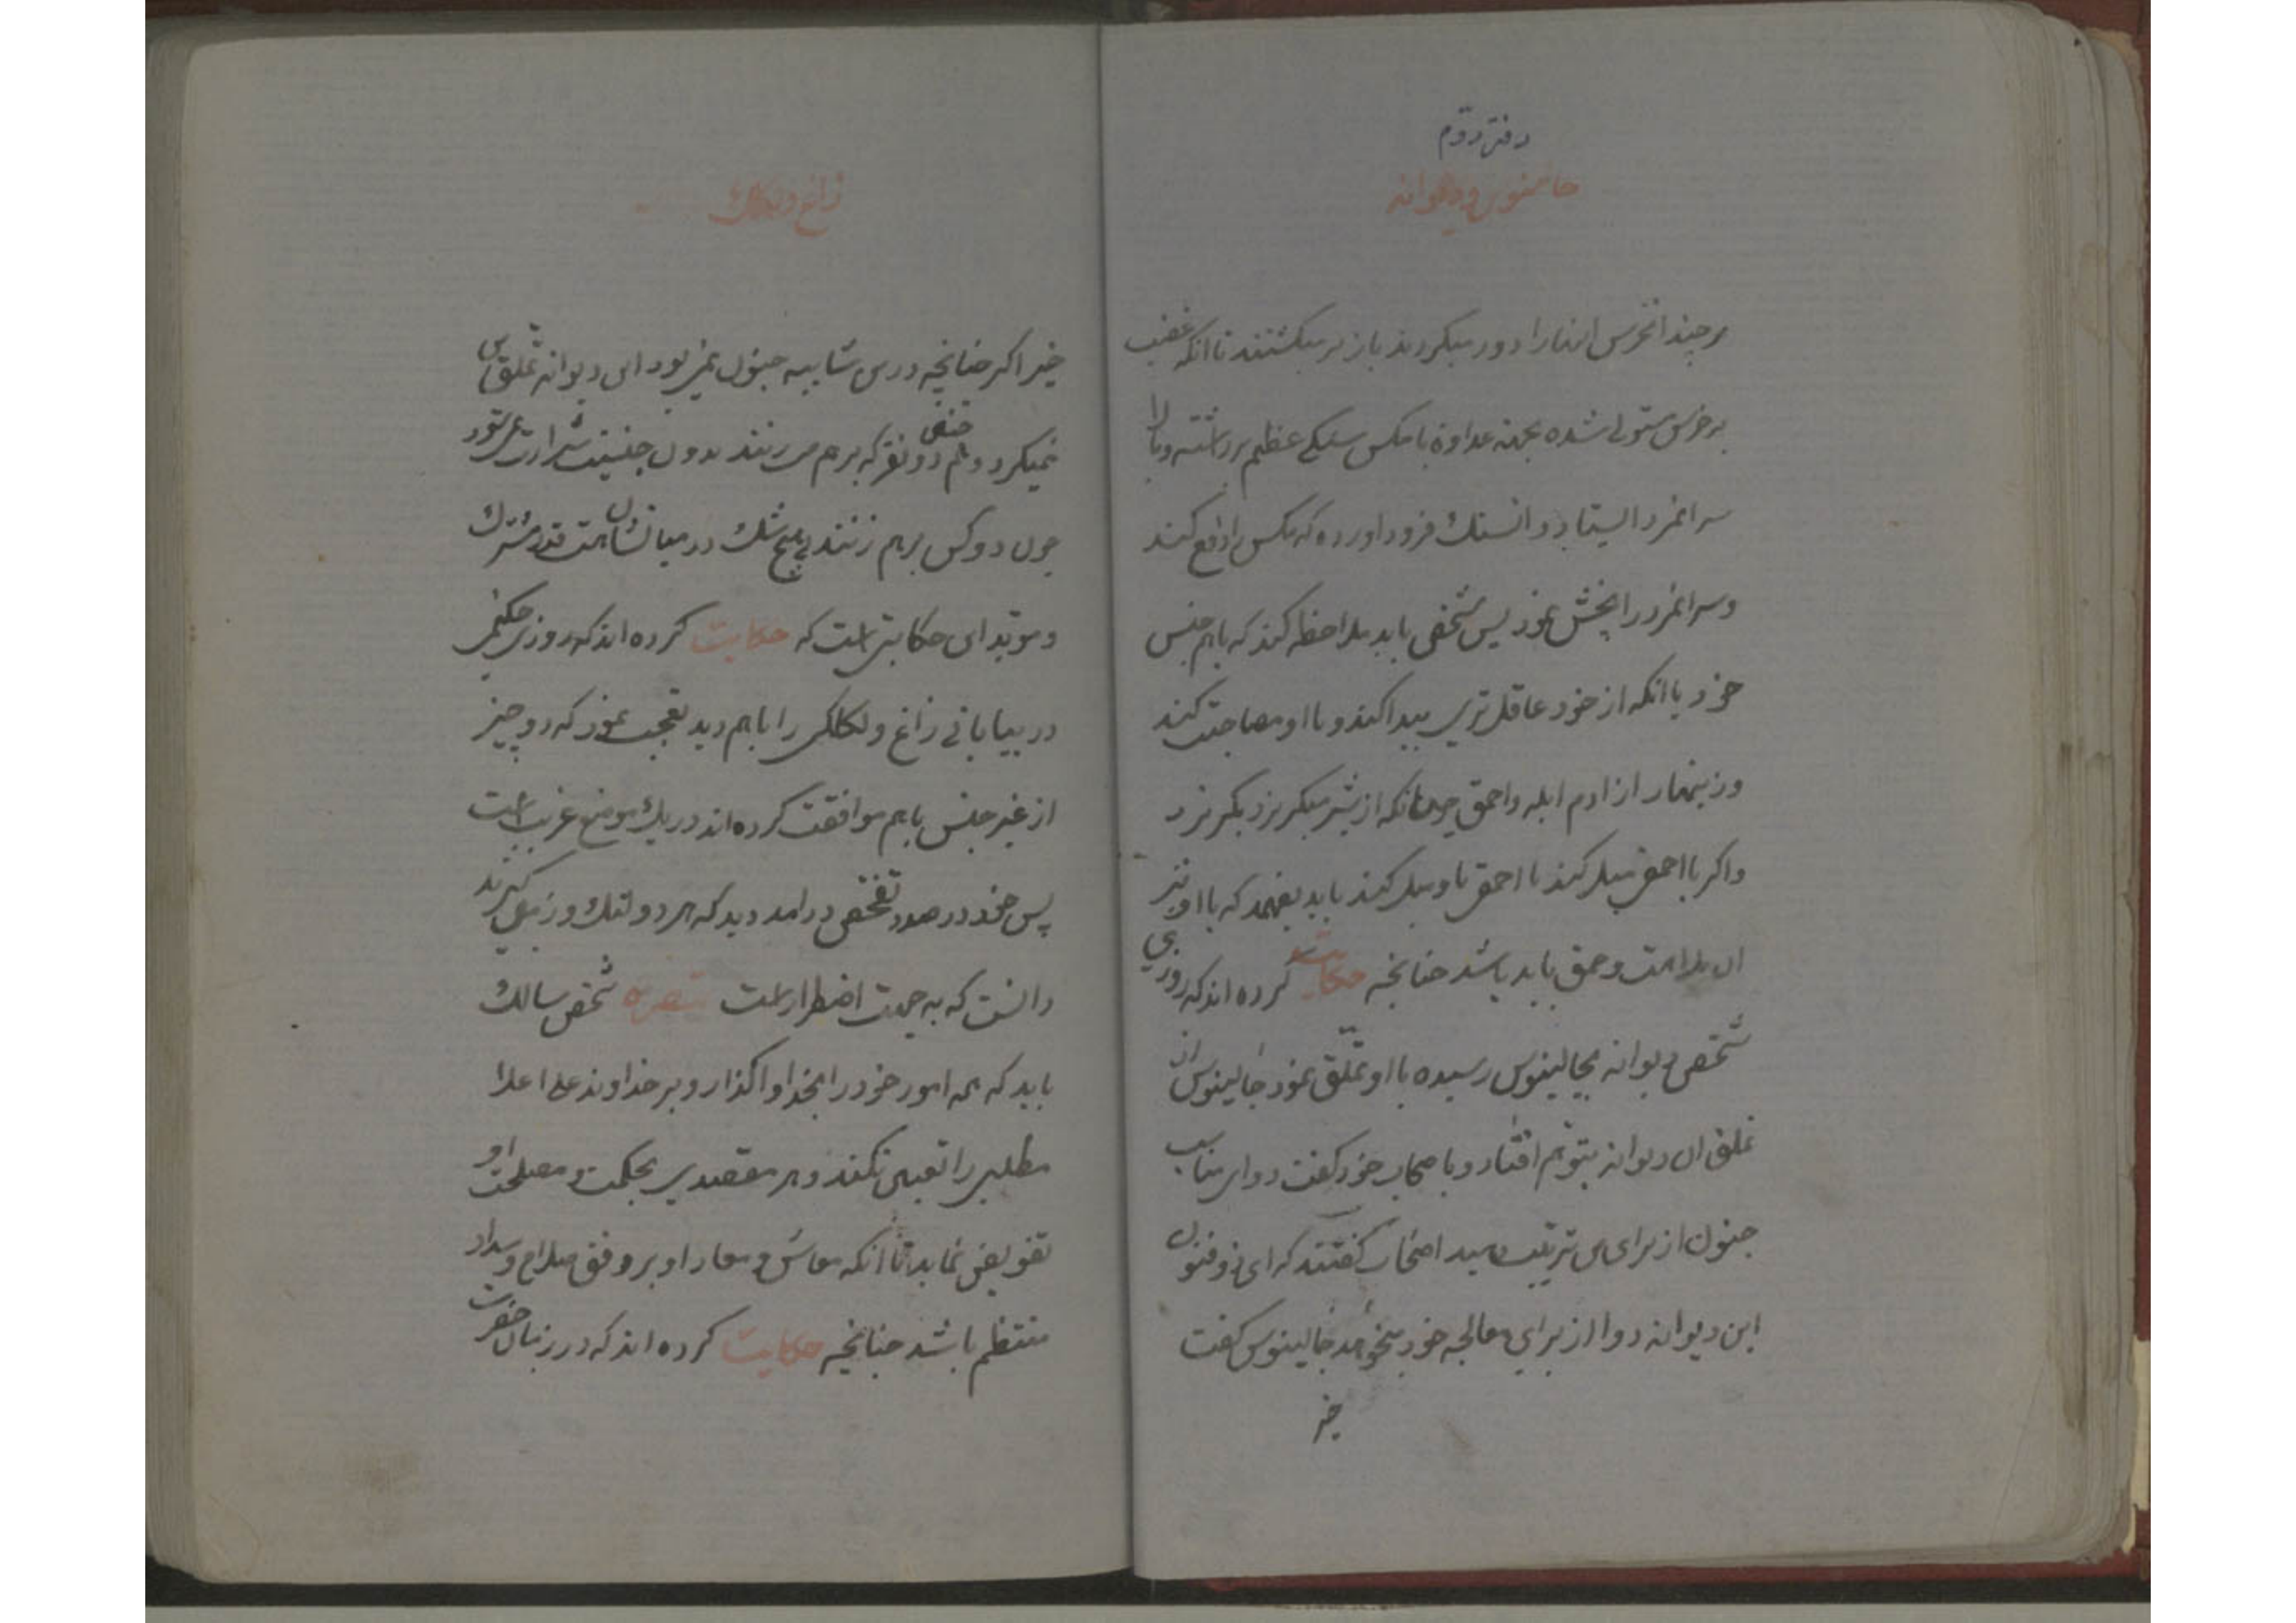 دفتر دوم
جالینوس و دیوانه
هر چند انخرس انها را دور میکردند باز بر میکشتند تا انکه غضب
بر خرس مستولی شده بجهته عداوة با مکس سنکی عظیم برداشته و بالا
سر انمرد ایستاد و انسنك فرود اورده که مکس را دفع کند
و سر انمرد را پخش نمود پس شخص باید ملاحظه کند که با هم جنس
خود یا انکه از خود عاقل تری پیدا کند و با او مصاحبت کند
و زینهار از ادم ابله و احمق چنانکه از شیر میکریزد بکریزد
و اکر با احمق میل کند یا احمق باو میل کند باید بفهمد که با او نیز
ان بلاهت و حمق باید باشد چنانچه حکایت کرده اند که روزی
شخص دیوانه بجالینوس رسیده با او تملق نمود جالینوس از
تملق ان دیوانه بتوهم افتاد و با صحاب خود کفت دوای مناسب
جنون از برای من ترتیب اصحاب کفتند که ای ذو فنون
این دیوانه دوا از برای معالجه خود میخواهد جالینوس کفت
خیر
زاغ و لکلك
خیر اکر چنانچه در من شایبه جنون نمی بود این دیوانه تملق من
نمیکرد و هم دو نفر که بر هم می زنند بدون جنسیت
چون دو کس بر هم زنند بی هیچ شك در میانشان هست قدر مشترك
و موید این حکایتی است که حکایت کرده اند که روزی حکیمی
در بیابانی زاغ و لکلکی را با هم دید تعجب نمود که دو چیز
از غیر جنس با هم موافقت کرده اند در یك موضع غریب است
پس خود در صدد تفحص در امد دید که هر دو لنك و زمین کیرند
دانست که به جهت اضطرار است تبصره شخص سالك
باید که همه امور خود را بخدا واکذارد و بر خداوند علی اعلا
مطلبی را تعیین نکند و هر مقصدی بحکمت و مصلحت او
تفویض نماید تا انکه معاش و معاد او بر وفق صلاح و سداد
منتظم باشد چنانچه حکایت کرده اند که در زمان حضرت